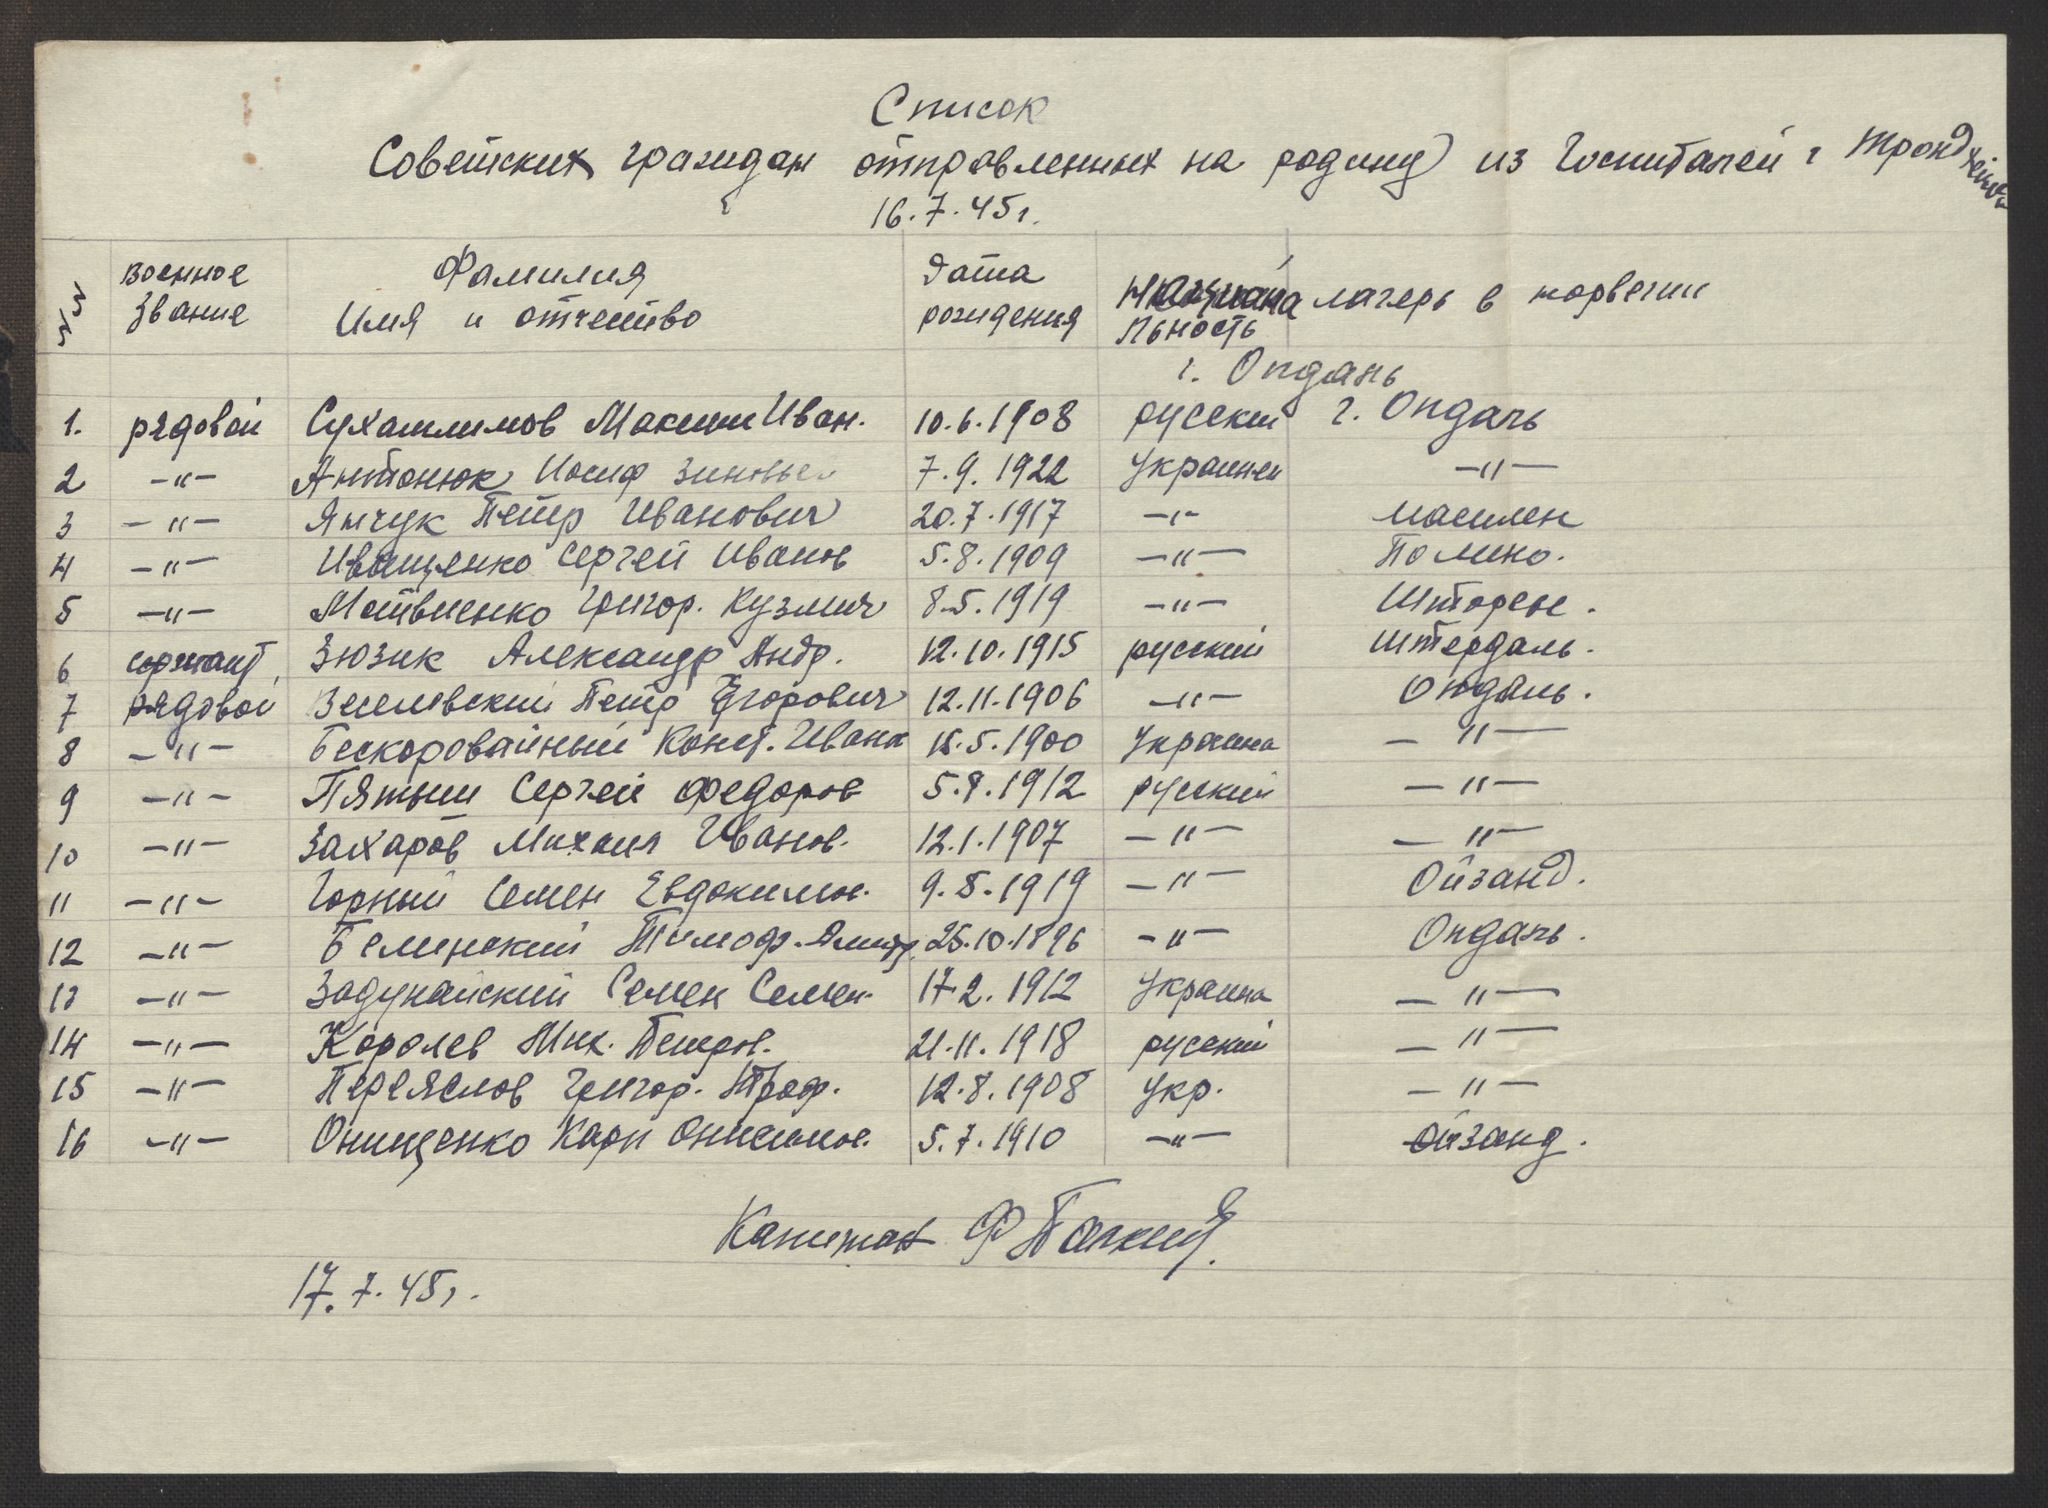 Список
Советских граждан отправленных на родину из Госпиталей г Трондхейма
16.7.45г.
№№ Военное Звание Фамилия Имя и отчество Дата рождения Национальность лагерь в норвегии
г. Опдаль
1. рядовой Сухаилимов Максим Иван. 10.6.1908 русский г. Опдаль
2 –"– Антонюк Иосиф Зиновьев 7.9.1922 Украинец –"–
3 –"– Янчук Петр Иванович 20.7.1917 –"–
4 –"– Иващенко Сергей Иванов 5.8.1909 –"–
5 –"– Матвиенко Григор. Кузмич 8.5.1919 –"– Шторен.
6 сержант Зюзик Александр Андр. 12.10.1915 русский Штердаль.
7 рядовой Веселовский Петр Егорович 12.11.1906 –"– Опдаль.
8 –"– Бескоровайный Конст. Иван 15.5.1900 Украина –"–
9 –"– Пятыш Сергей Федоров 5.8.1912 русский –"–
10 –"– Захаров Михаил Иванов. 12.1.1907 –"– –"–
11 –"– Горный Семен Евдокимов. 9.8.1919 –"– Ойзанд.
12 –"– Белинский Тимоф. Дмитр. 25.10.1896 –"– Опдаль.
13 –"– Задунайский Семен Семен. 17.2.1912 Украина –"–
14 –"– Королев Мих. Петров. 21.11.1918 русский –"–
15 –"– Переяслов Григор. Троф. 12.8.1908 Укр. –"–
16 –"– Онищенко Карп Онисимов. 5.7.1910 –"– Ойзанд.
Капитан Ф
17.7.45г.